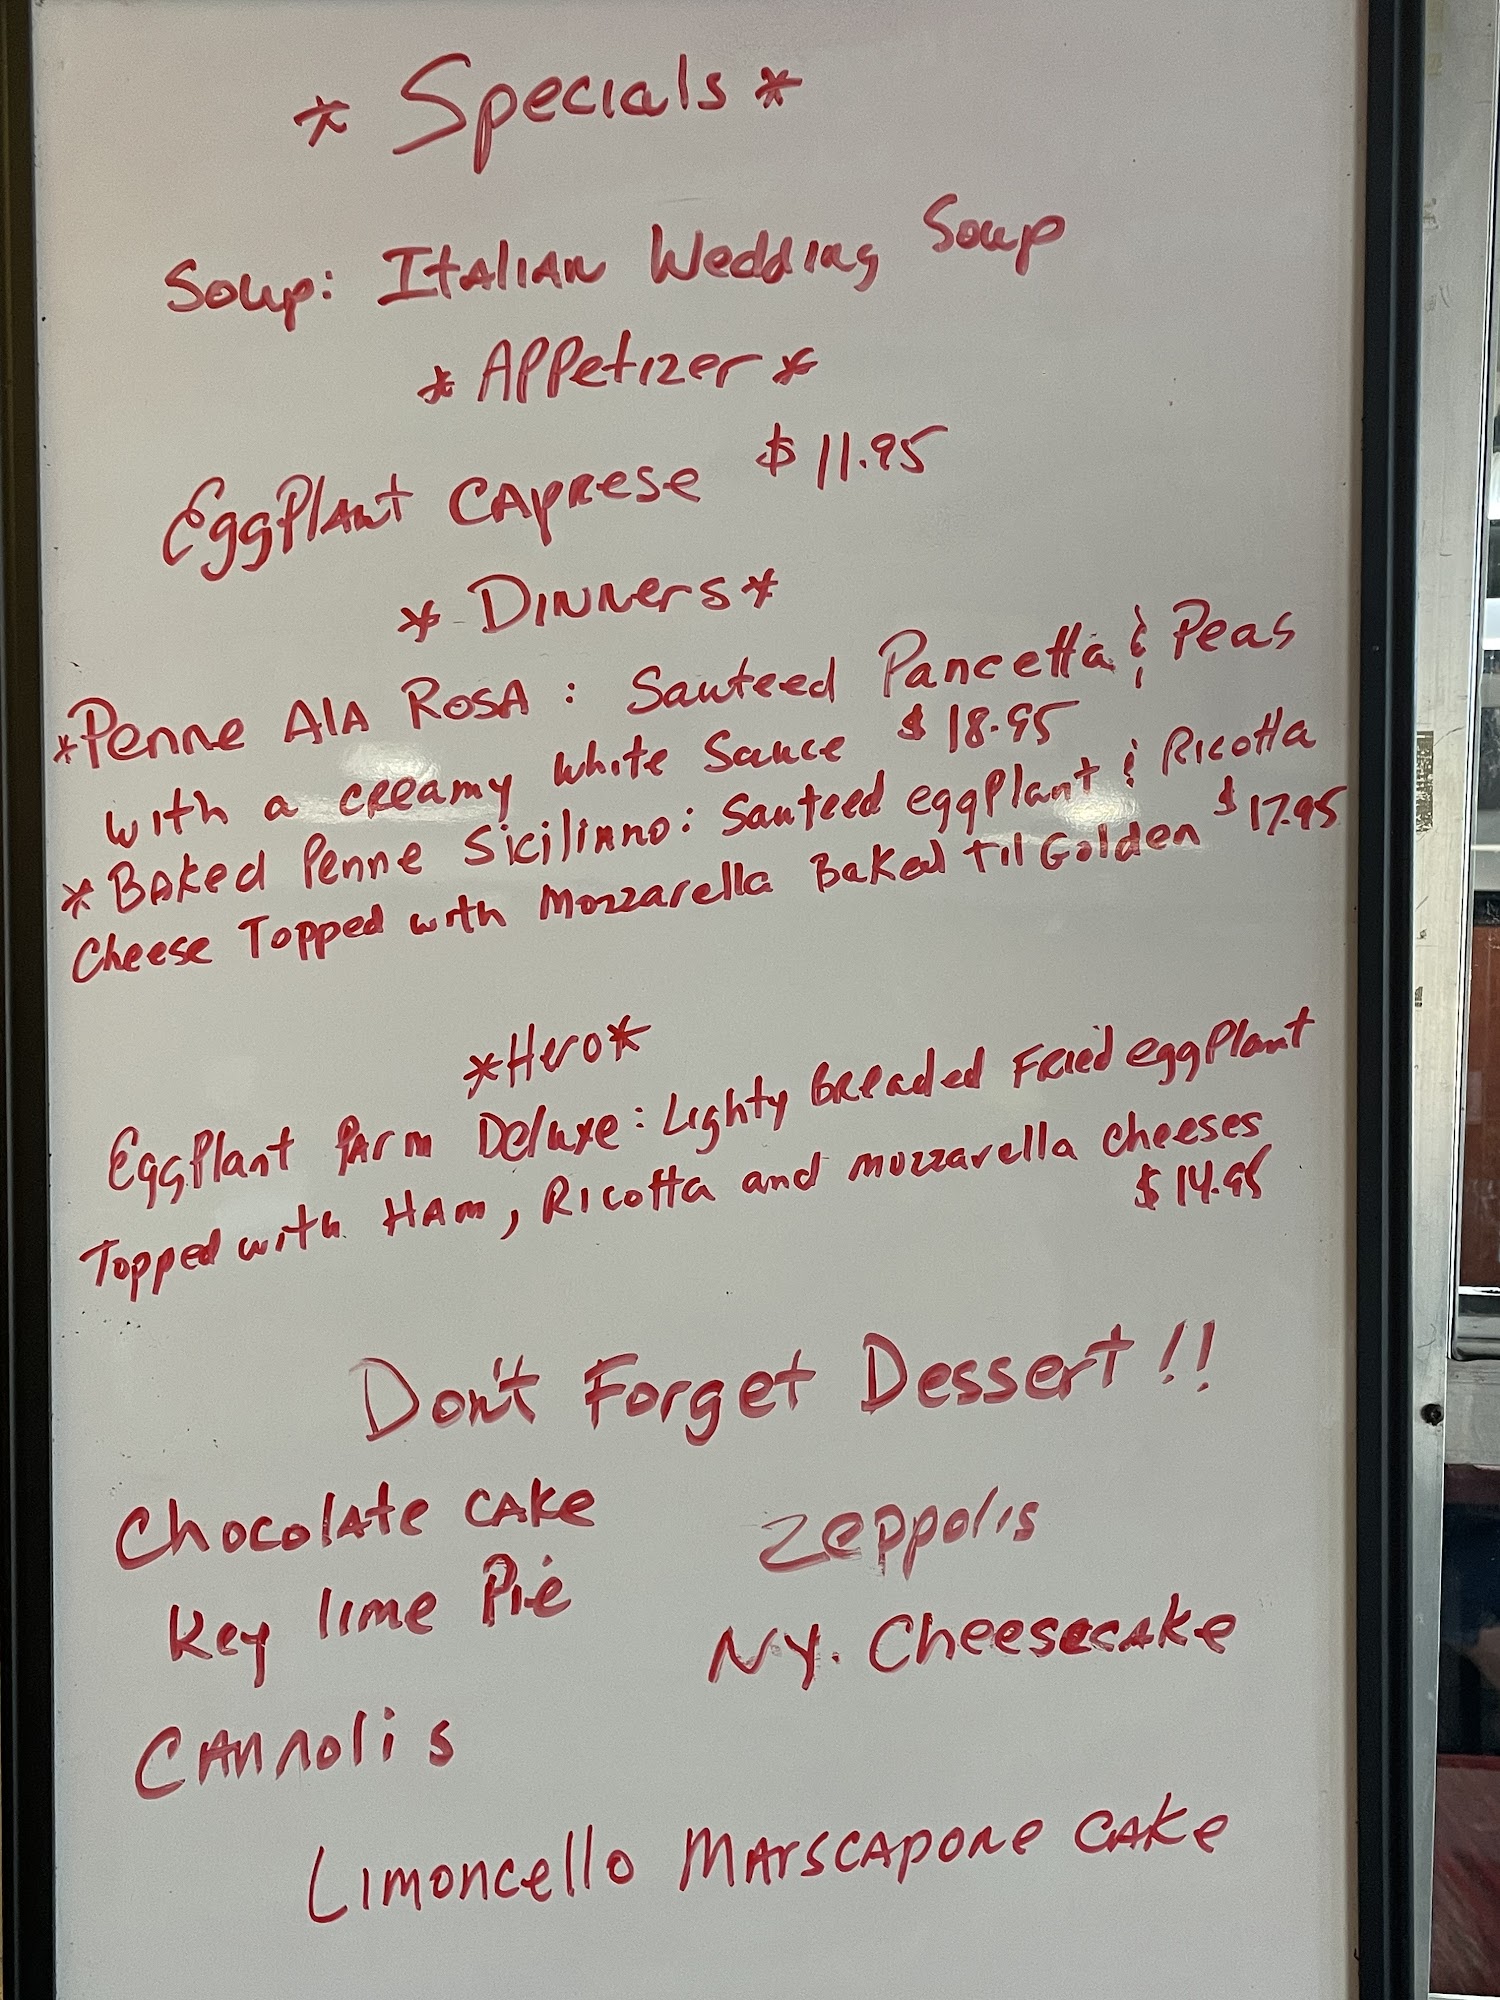 * Specials *
Soup: Italian Wedding Soup
* Appetizer *
Eggplant Caprese $11.95
* Dinners *
*Penne Ala Rosa: Sauteed Pancetta & Peas
with a creamy white Sauce $18.95
*Baked Penne Siciliano: Sauteed eggplant & Ricotta
Cheese Topped with Mozzarella Baked til Golden $17.95
*Hero*
Eggplant Parm Deluxe: Lighty Breaded Fried eggplant
Topped with Ham, Ricotta and mozzarella cheeses
$14.95
Don't Forget Dessert!!
Chocolate Cake Zeppolis
Key lime Pie N.Y. Cheesecake
Cannolis
Limoncello Marscapone Cake